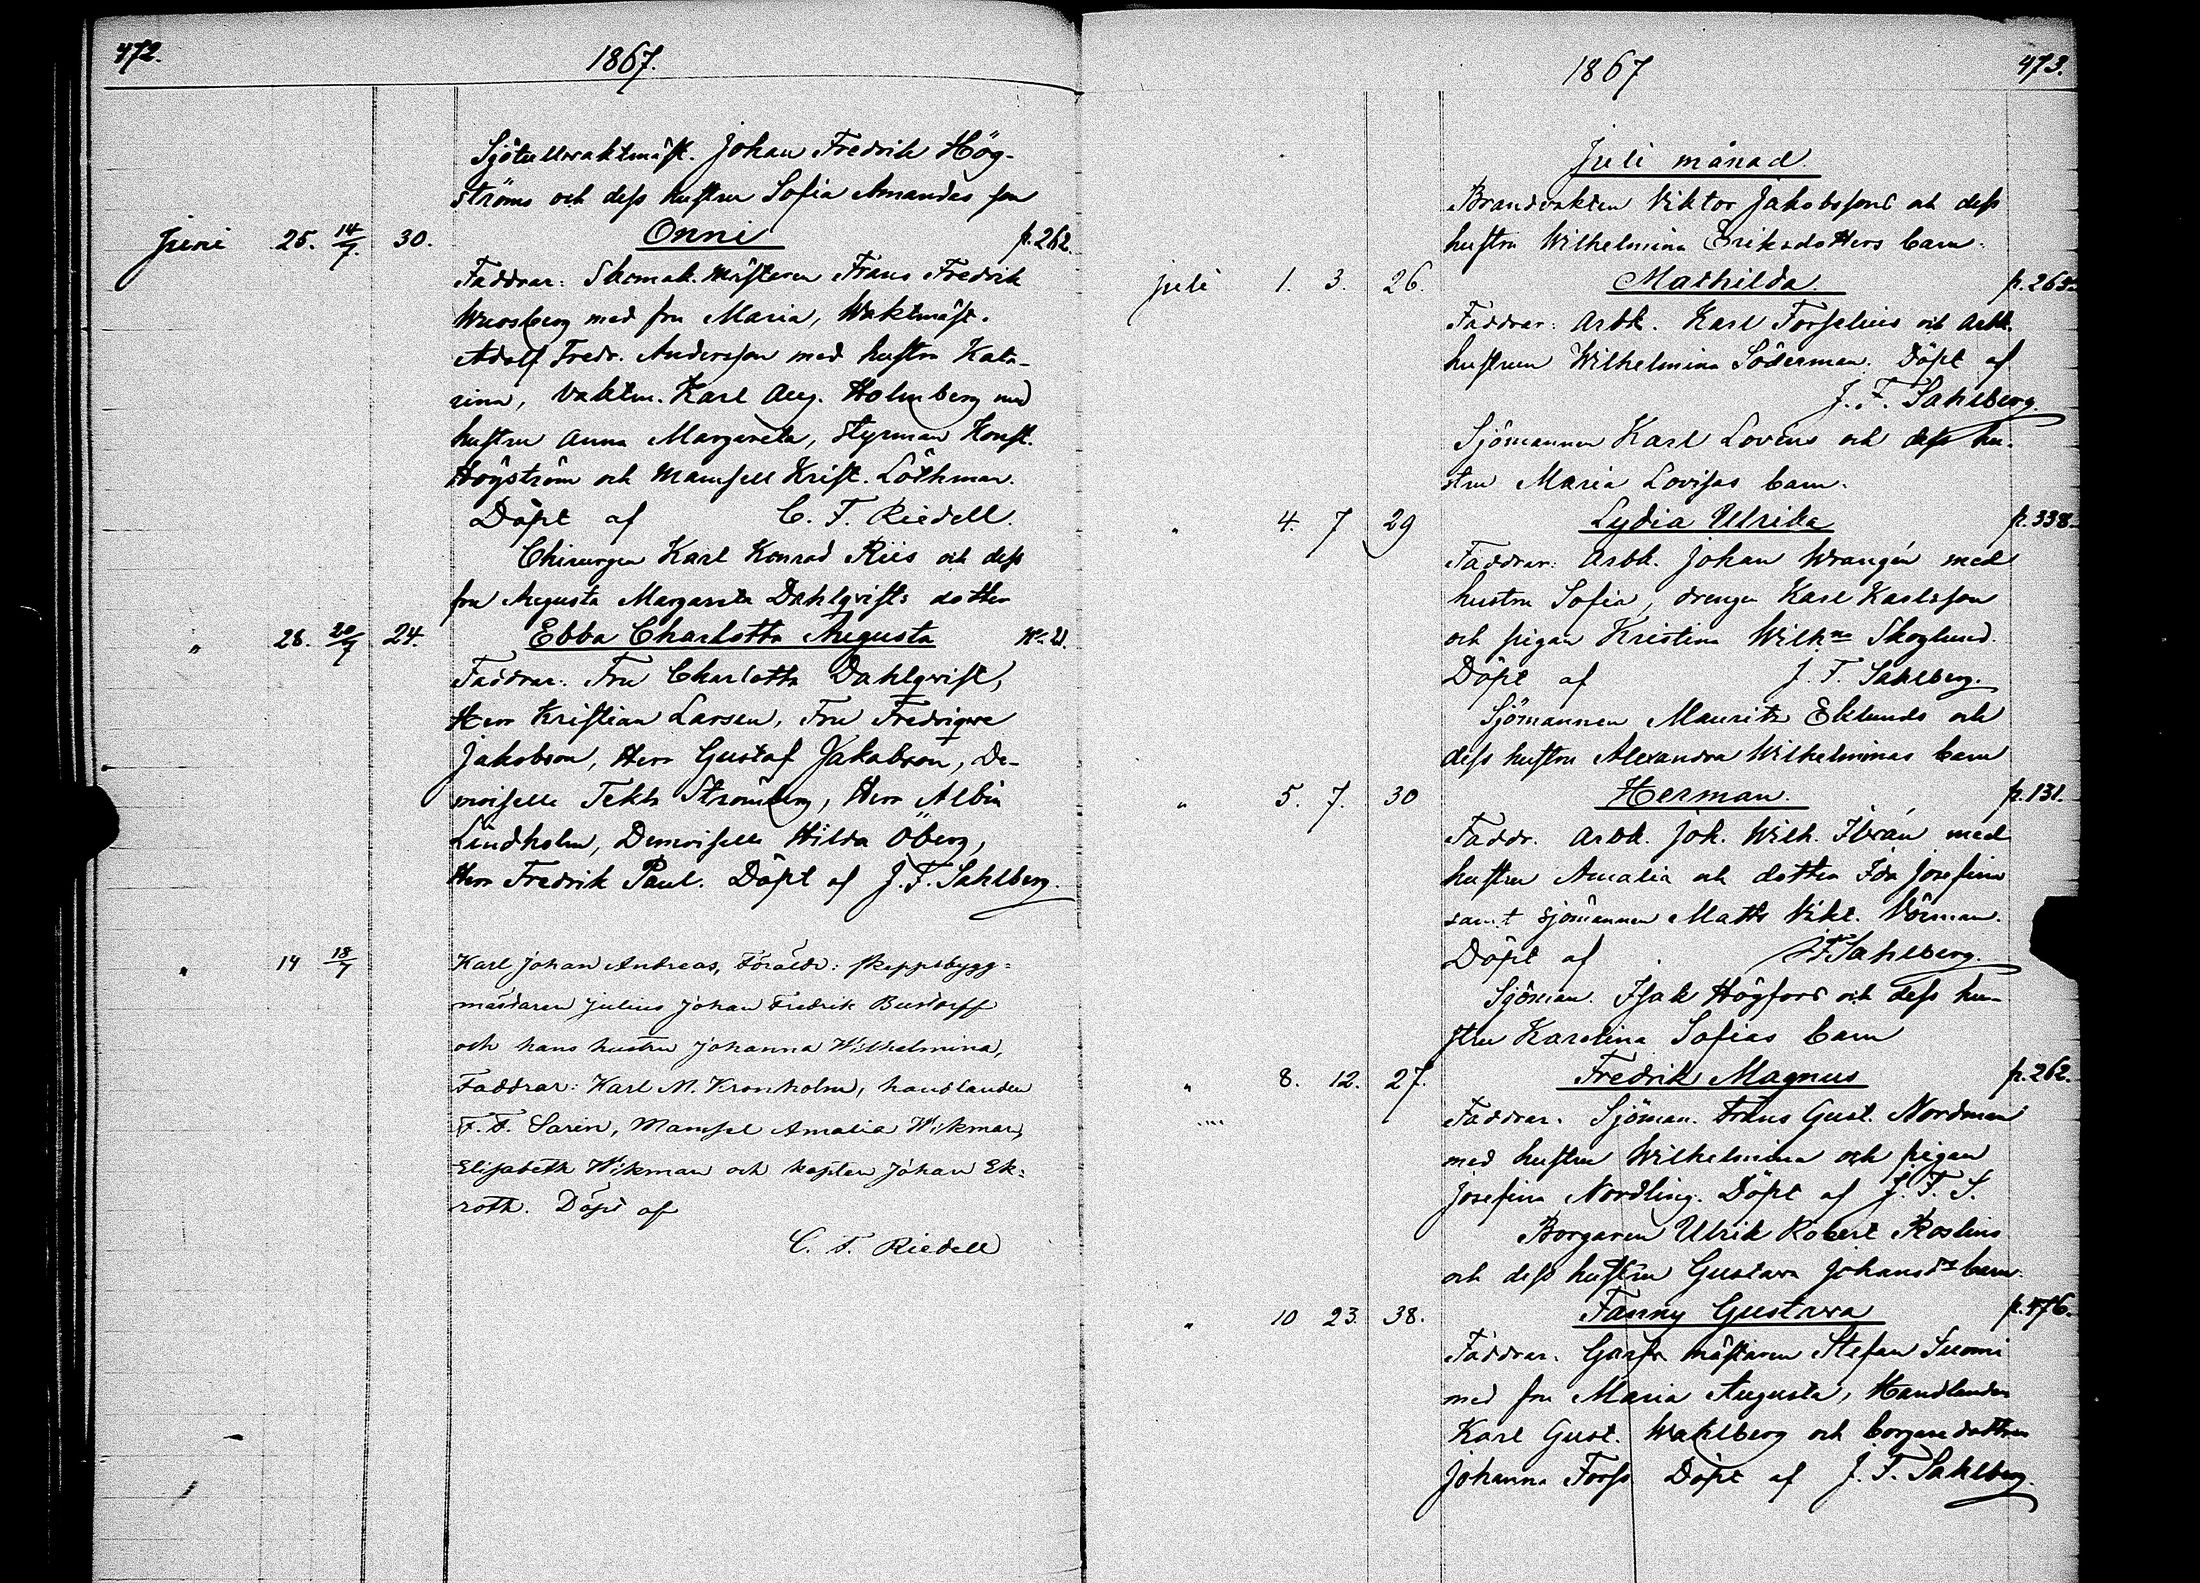 472.
1867.
Sjötullvaktmäst. Johan Fredrik Hög-
ströms och dess hustru Sofia Amandas son
Juni 25. 14/7. 30. Onni p. 262.
Faddrar: Skomak. Mästaren Frans Fredrik
med fru Maria, Waktmäst.
Adolf Fredr. Andersson med hustru Kata-
rina, Vaktm. Karl Aug. Holmberg med
hustru Anna Margareta, Styrman Konst.
Högström och Mamsell Krist. Löthman.
Döpt af C. F. Riedell.
Chirurgen Karl Konrad Riis och dess
fru Augusta Margareta Dahlqvists dotter
" 28. 20/7 24. Ebba Charlotta Augusta
Faddrar. Fru Charlotta Dahlqvist,
Herr Kristian Larsen, Fru Fredriqve
Jakobson, Herr Gustaf Jakobson, De-
moiselle Tekla Strömberg, Herr Albin
Lindholm, Demoiselle Hilda Öberg,
Herr Fredrik Paul. Döpt af J. F. Sahlberg.
" 14 18/7 Karl Johan Andreas, Föräldr: skeppsbygg-
mästaren Julius Johan Fredrik Busdorff
och hans hustru Johanna Wilhelmina,
Faddrar: Karl M. Kronholm, handlanden
F. F. Sarin, Mamsel Amalia Wikman,
Elisabeth Wikman och kapten Johan Ek-
roth. Döpt af
C. F. Riedell
1867
473.
Juli månad
Brandvakten Viktor Jakobssons och dess
hustru Wilhelmina Eriksdotters barn.
Juli 1. 3. 26. Mathilda p. 263.
Faddrar: Arbk. Karl Forselius och Arbk.
hustrun Wilhelmina Söderman. Döpt af
J. F. Sahlberg.
Sjömannen Karl Lovéns och dess hu-
stru Maria Lovisas barn.
" 4. 7 29 Lydia Ulrika p. 338.
Faddrar: Arbk. Johan Wrangén med
hustru Sofia, drengen Karl Karlsson
och pigan Kristina Wilhna Skoglund.
Döpt af J. F. Sahlberg.
Sjömannen Mauritz Eklunds och
dess hustru Alexandra Wilhelminas barn
" 5. 7. 30 Herman. p. 131.
Faddr. Arbk. Joh. Wilh. med
hustru Amalia och dotter Ida Josefina
samt sjömannen Matts Vikt. Vörman.
Döpt af J. F. Sahlberg.
Sjöman. Isak Högfors och dess hu-
stru Karolina Sofias barn
" 8. 12. 27. Fredrik Magnus p. 262.
Faddrar. Sjöman. Frans Gust. Nordman
med hustru Wilhelmina och pigan
Josefina Nordling. Döpt af J. F. S.
Borgaren Ulrik Robert Roslins
och dess hustru Gustava Johansdrs barn.
" 10 23. 38. Fanny Gustava p. 476.
Faddrar. Garfv. mästaren Stefan Suomi
med fru Maria Augusta, Handlanden
Karl Gust. Wahlberg och borgaredottren
Johanna Forss Döpt af J. F. Sahlberg.